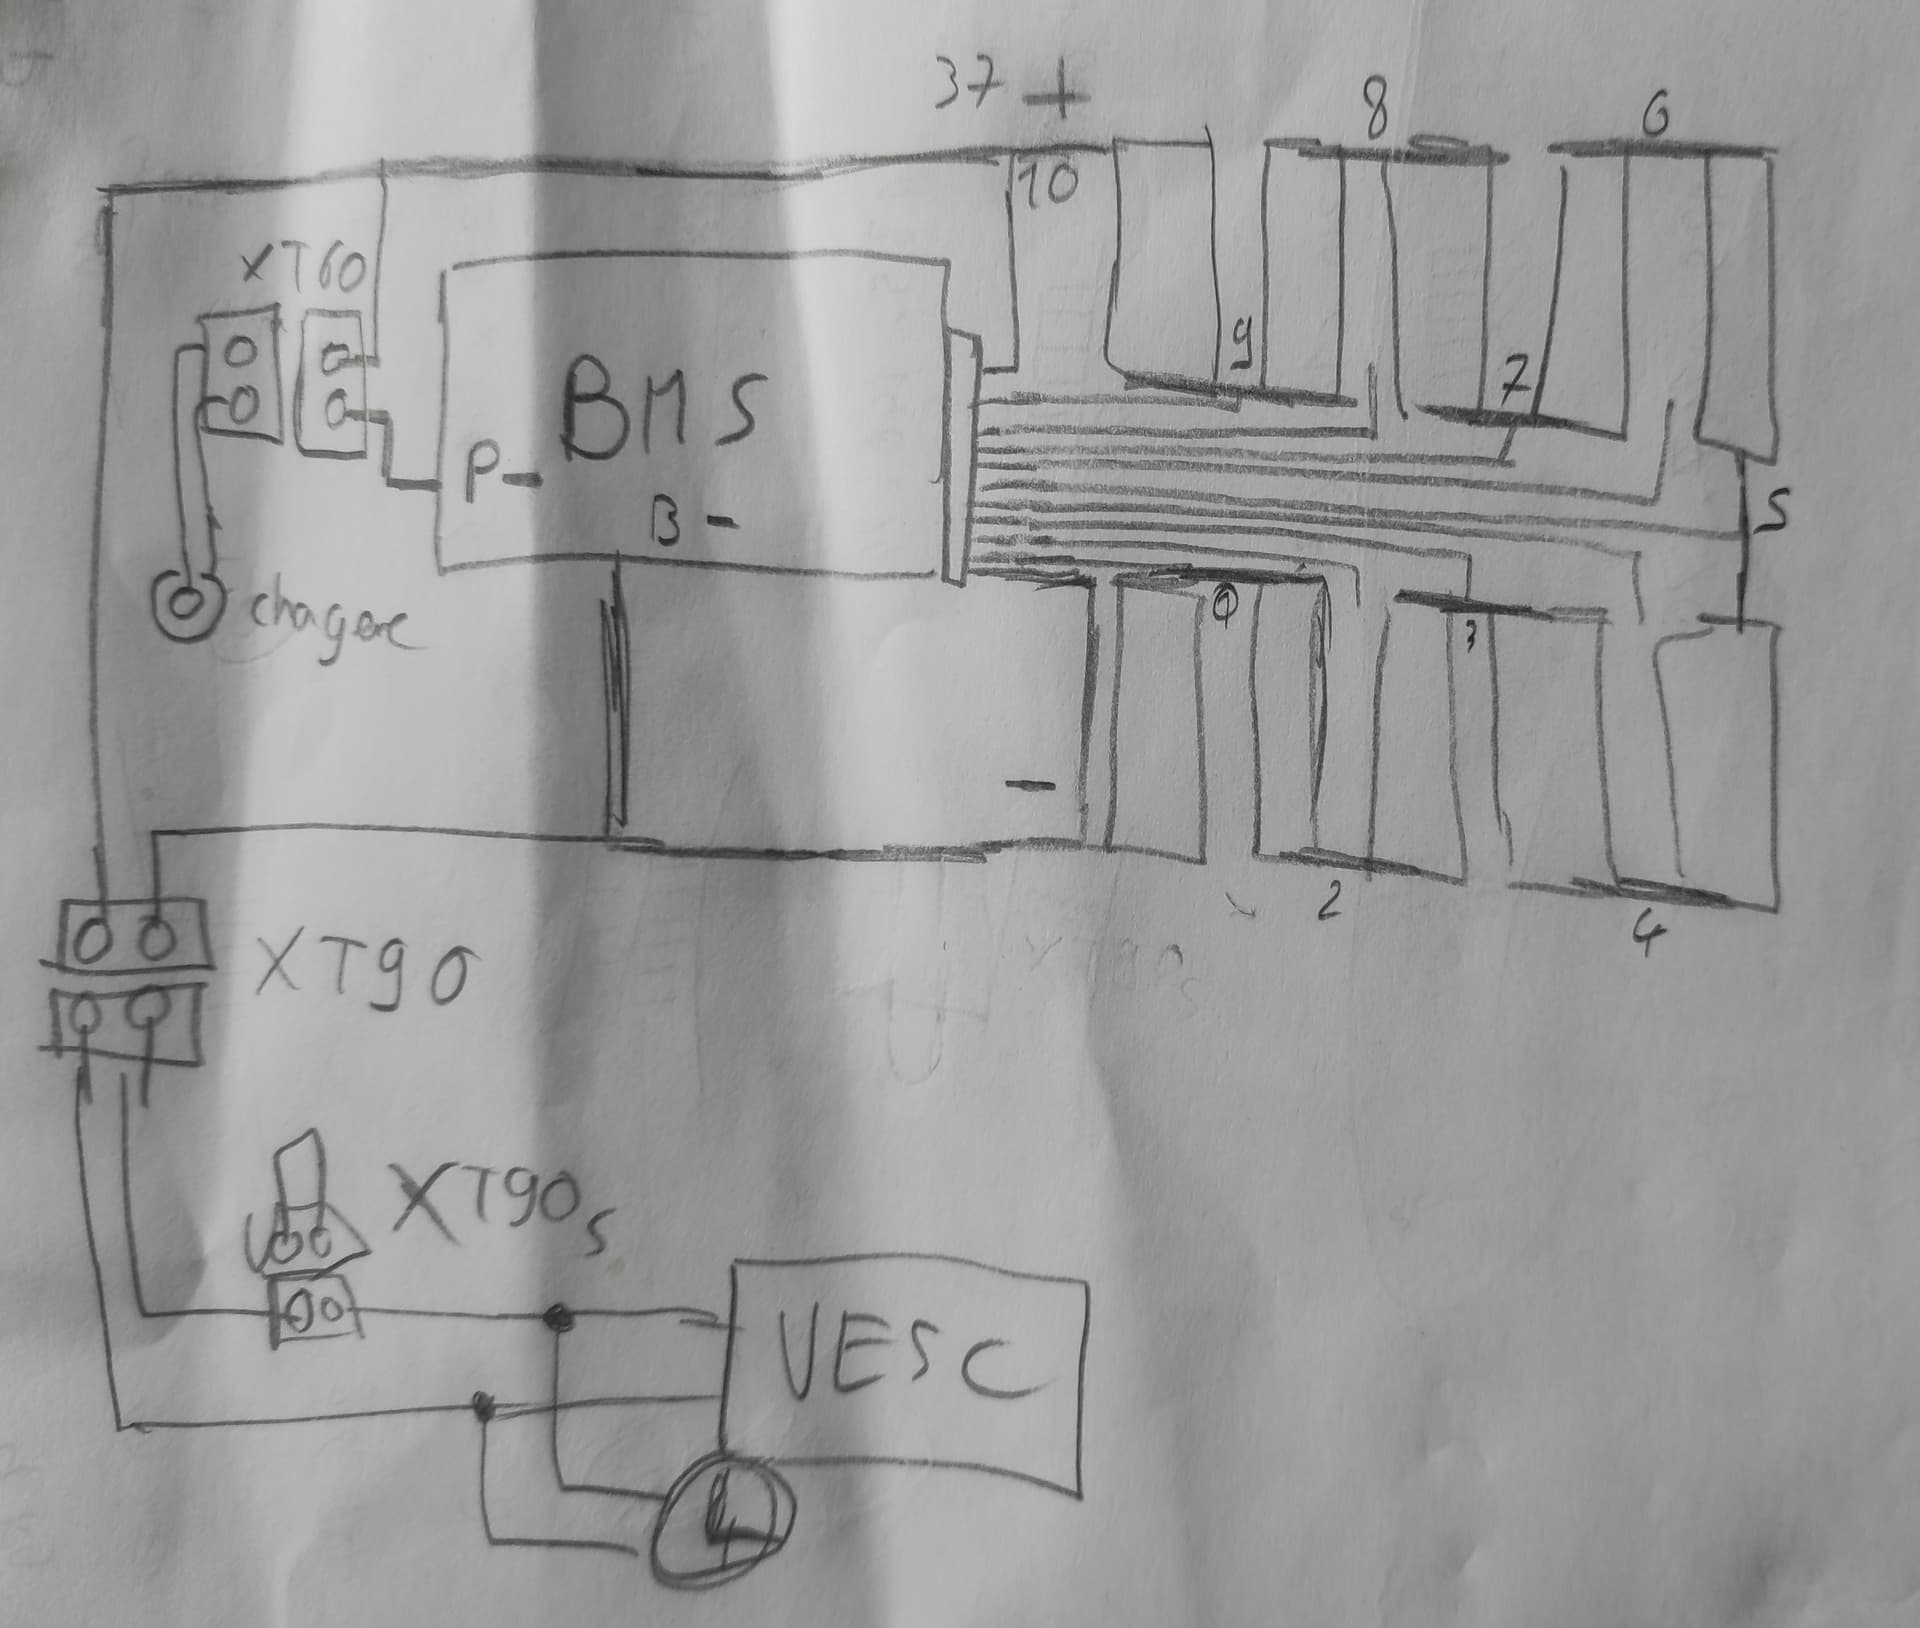 37 +
8
6
10
XT60
9
7
BMS
P-
B-
5
chagere
1
3
-
2
4
XT90
XT90s
VESC